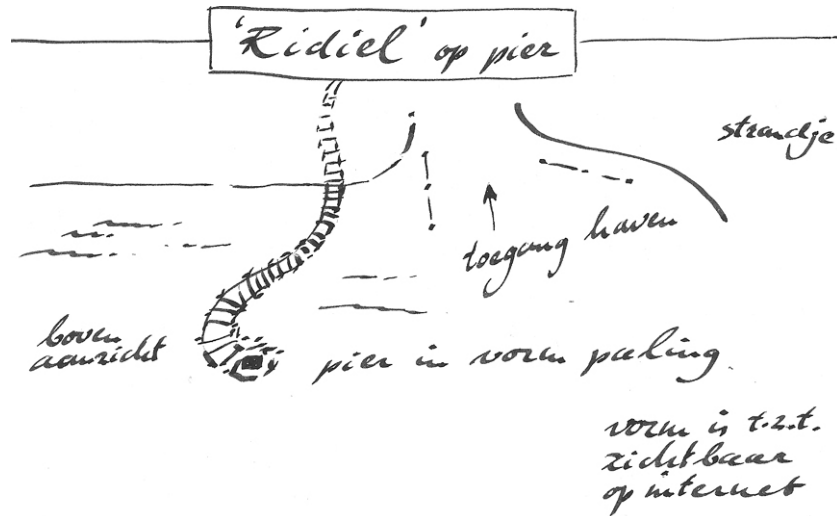 'Ridiel' op pier
strandje
toegang haven
boven
aanzicht
pier in vorm paling.
vorm is t.z.t.
zichtbaar
op internet